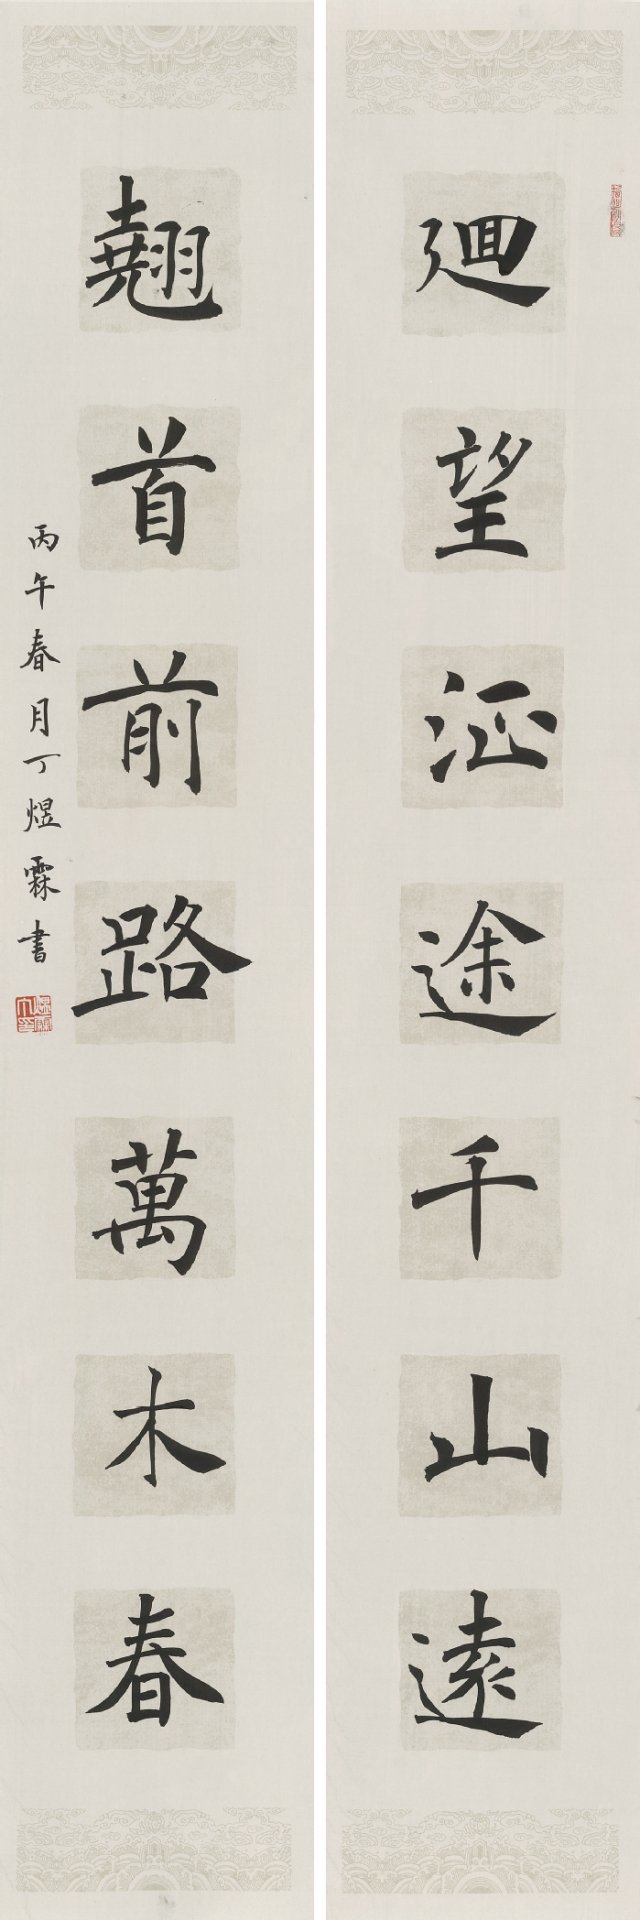 廻望征途千山遠
翹首前路萬木春
丙午春月丁煜霖書